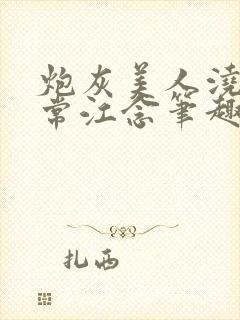 炮灰美人浇
常江念笔趣
扎西